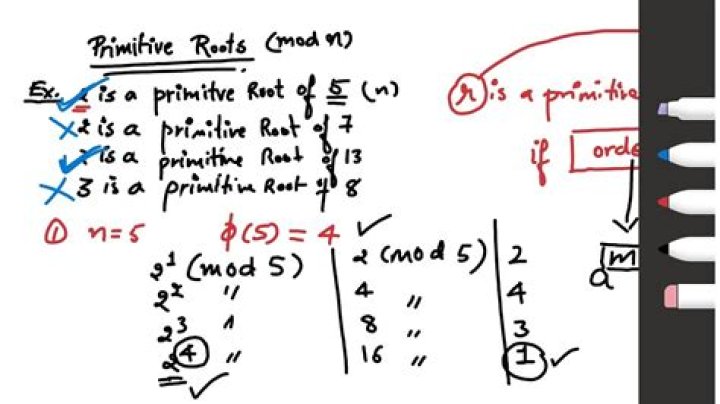 Primitive Roots (mod n)
Ex. 2 is a primitve Root of 5 (n)
2 is a primitive Root of 7
2 is a primitive Root of 13
3 is a primitive Root of 8
r is a primitive
if orde
① n=5 φ(5) = 4
2¹ (mod 5) 2 (mod 5) 2
2² " 4 " 4
2³ " 8 " 3
2⁴ " 16 " 1
a m